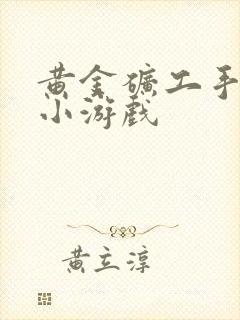 黄金礦工手
小游戏
黄立淳